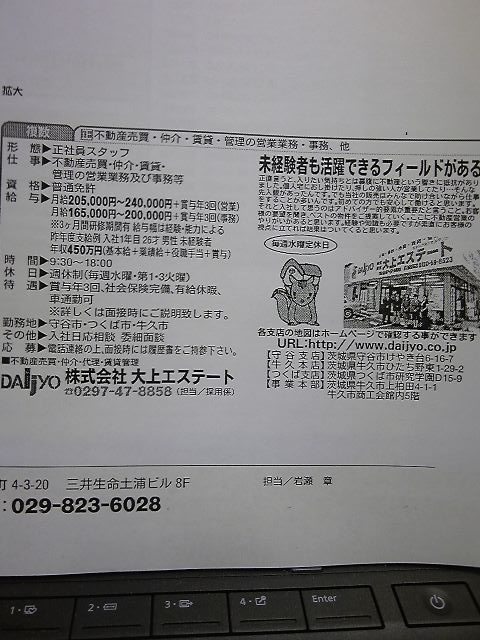 拡大
複数
不動産売買・仲介・賃貸・管理の営業業務・事務、他
形 態▶正社員スタッフ
仕 事▶不動産売買・仲介・賃貸・
管理の営業業務及び事務等
資 格▶普通免許
給 与▶月給205,000円~240,000円+賞与年3回(営業)
月給165,000円~200,000円+賞与年3回(事務)
※3ヶ月間研修期間有 給与幅は経験・能力による
昨年度支給例 入社1年目 26才 男性 未経験者
年収450万円(基本給+業績給+役職手当+賞与)
時 間▶9:30~18:00
休 日▶週休制(毎週水曜・第1・3火曜)
待 遇▶賞与年3回、社会保険完備、有給休暇、
車通勤可
※詳しくは面接時にご説明致します。
勤務地▶守谷市・つくば市・牛久市
その他▶入社日応相談 委細面談
応 募▶電話連絡の上、面接時には履歴書をご持参下さい。
■不動産売買・仲介・代理・賃貸管理
DAIJYO 株式会社 大上エステート
☎0297-47-8858 (担当/採用係)
未経験者も活躍できるフィールドがある
毎週水曜定休日
大上エステート
各支店の地図はホームページで確認する事ができます
URL:http://www.daijyo.co.jp
【守谷支店】茨城県守谷市けやき台6-16-7
【牛久本店】茨城県牛久市ひたち野東1-29-2
【つくば支店】茨城県つくば市研究学園D15-9
【事業本部】茨城県牛久市上柏田4-1-1
牛久市商工会館内5階
町 4-3-20 三井生命土浦ビル 8F 担当/岩瀬 章
: 029-823-6028
1・
2・
3・
4・
Enter